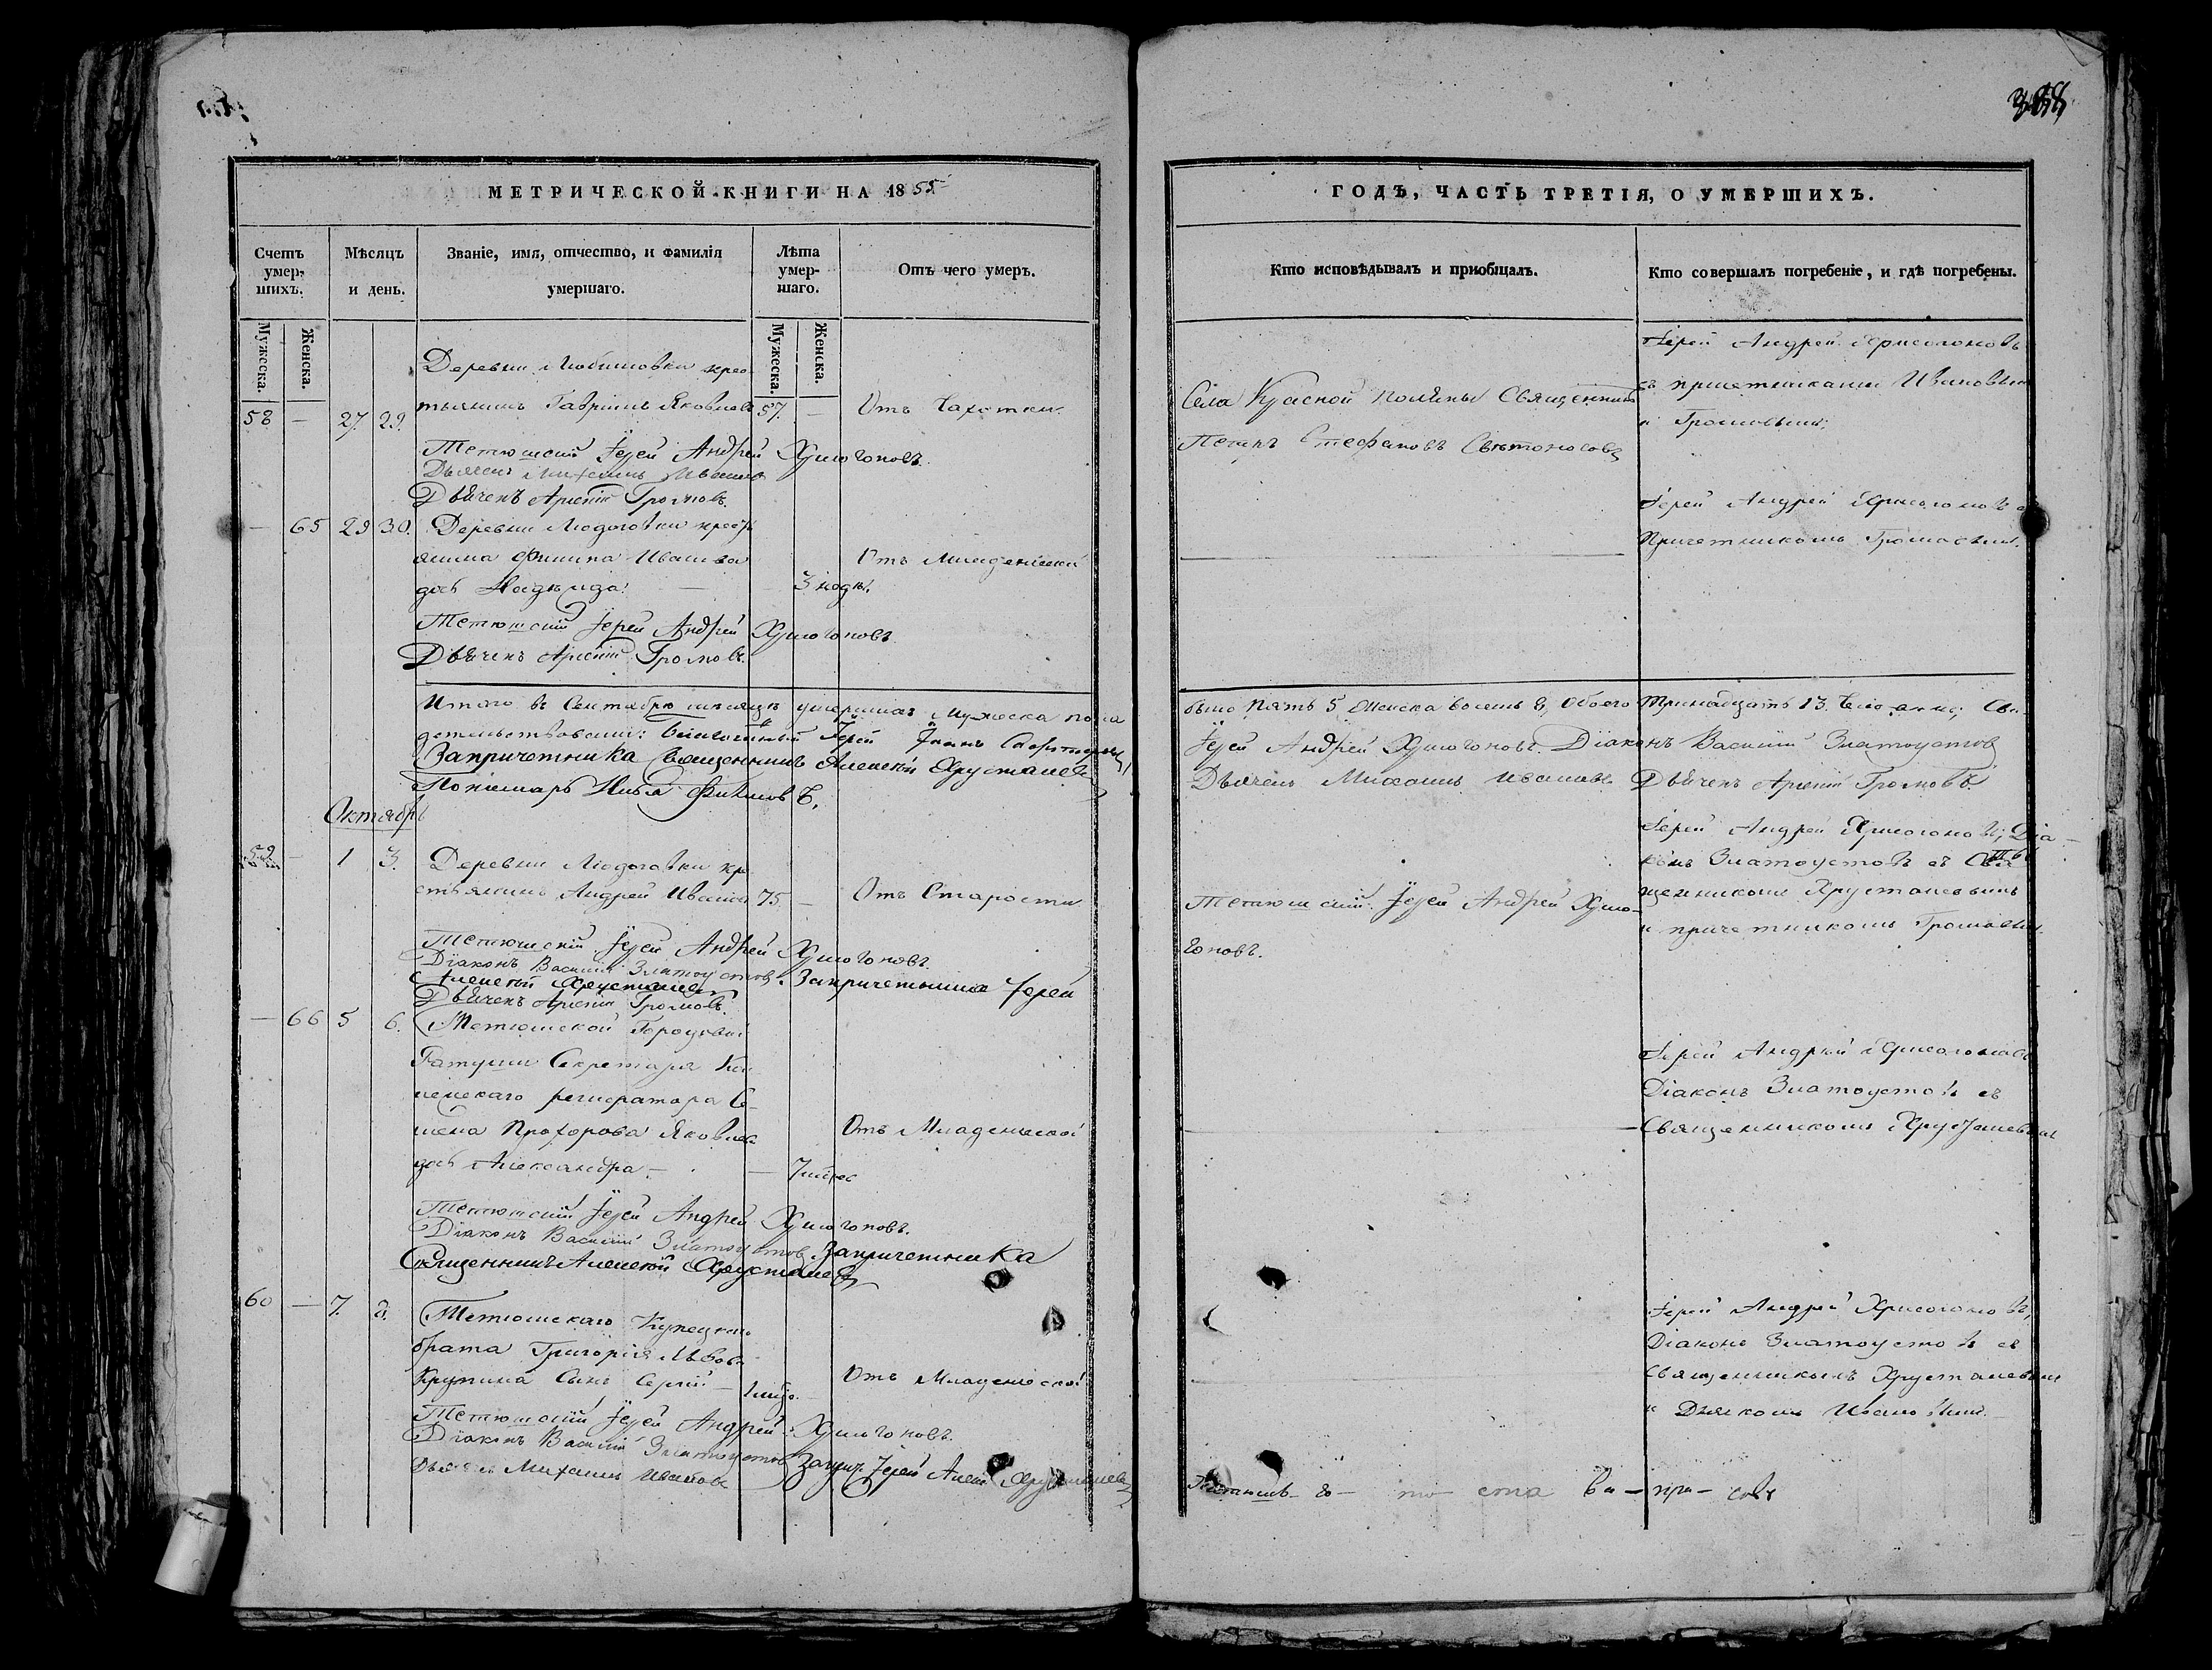 МЕТРИЧЕСКОЙ КНИГИ НА 1855
Счетъ умер-шихъ.
Мѣсяцъ и день.
Званіе, имя, отчество, и фамилія умершаго.
Лѣта умер-шаго.
Отъ чего умеръ.
Мужеска.
Женска.
Мужеска.
Женска.
Деревни Любимовки крес-
58 — 27. 29. тьянинъ Гавріилъ Яковлевъ 57. — Отъ Чахотки.
Тетюшскій Іерей Андрей Хрисогоновъ.
Дьячекъ Михаилъ Ивановъ
Дьячекъ Арсеній Громовъ.
— 65 29 30. Деревни Людоговки кресть
янина Филипа Иванова Отъ Младенческой
дочь Надежда. — 3 годъ.
Тетюшскій Іерей Андрей Хрисогоновъ
Дьячекъ Арсеній Громовъ.
Итого въ Сентябрѣ мѣсяцѣ умершихъ Мужеска пола
детельствовали: Благочинный Іерей Іоаннъ
За причетника Священникъ Алексѣй Хрусталевъ
Пономарь Филиповъ.
Октябрь
59 — 1 3. Деревни Людоговки кре
стьянинъ Андрей Ивановъ 75 — Отъ Старости
Тетюшскій Іерей Андрей Хрисогоновъ.
Діаконъ Василій Златоустовъ. За причетника Іерей
Алексѣй Хрусталевъ
Дьячекъ Арсеній Громовъ.
— 66 5 6. Тетюшской Городовой
Ратуши Секретаря Кол
лежскаго регистратора Се-
мена Прохорова Яковлева Отъ Младенческой
дочь Александра — — 7 мѣс
Тетюшскій Іерей Андрей Хрисогоновъ.
Діаконъ Василій Златоустовъ За причетника
Священникъ Алексѣй Хрусталевъ
60 — 7. 8. Тетюшскаго Купецкаго
брата Григорія Львова
Крупина Сынъ Сергій — Отъ Младенческой
Тетюшскій Іерей Андрей Хрисогоновъ.
Діаконъ Василій Златоустовъ За прич. Іерей Алексѣй Хрусталевъ
Дьячекъ Михаилъ Ивановъ
ГОДЪ, ЧАСТЬ ТРЕТІЯ, О УМЕРШИХЪ.
Кто исповѣдывалъ и пріобщалъ.
Кто совершалъ погребеніе, и гдѣ погребены.
Села Красной Поляны Священникъ
Петръ Стефановъ Свѣтоносовъ
Іерей Андрей Хрисогоновъ
съ причетниками Ивановымъ
и Громовымъ.
Іерей Андрей Хрисогоновъ съ
Причетникомъ Громовымъ.
было Пять 5 Женска восемь 8, Обоего Тринадцать 13. Человекъ; Сви-
Іерей Андрей Хрисогоновъ. Діаконъ Василій Златоустовъ
Дьячекъ Михаилъ Ивановъ Дьячекъ Арсеній Громовъ.
Тетюшскій Іерей Андрей Хрисо-
гоновъ.
Іерей Андрей Хрисогоновъ, Діа-
конъ Златоустовъ съ Свя
щенникомъ Хрусталевымъ
и причетникомъ Громовымъ.
Іерей Андрей Хрисогоновъ
Діаконъ Златоустовъ съ
Священникомъ Хрусталевымъ
Іерей Андрей Хрисогоновъ,
Діаконъ Златоустовъ съ
Священникомъ Хрусталевымъ
и Дьячкомъ Ивановымъ.
го — то — ста ва — при — совъ